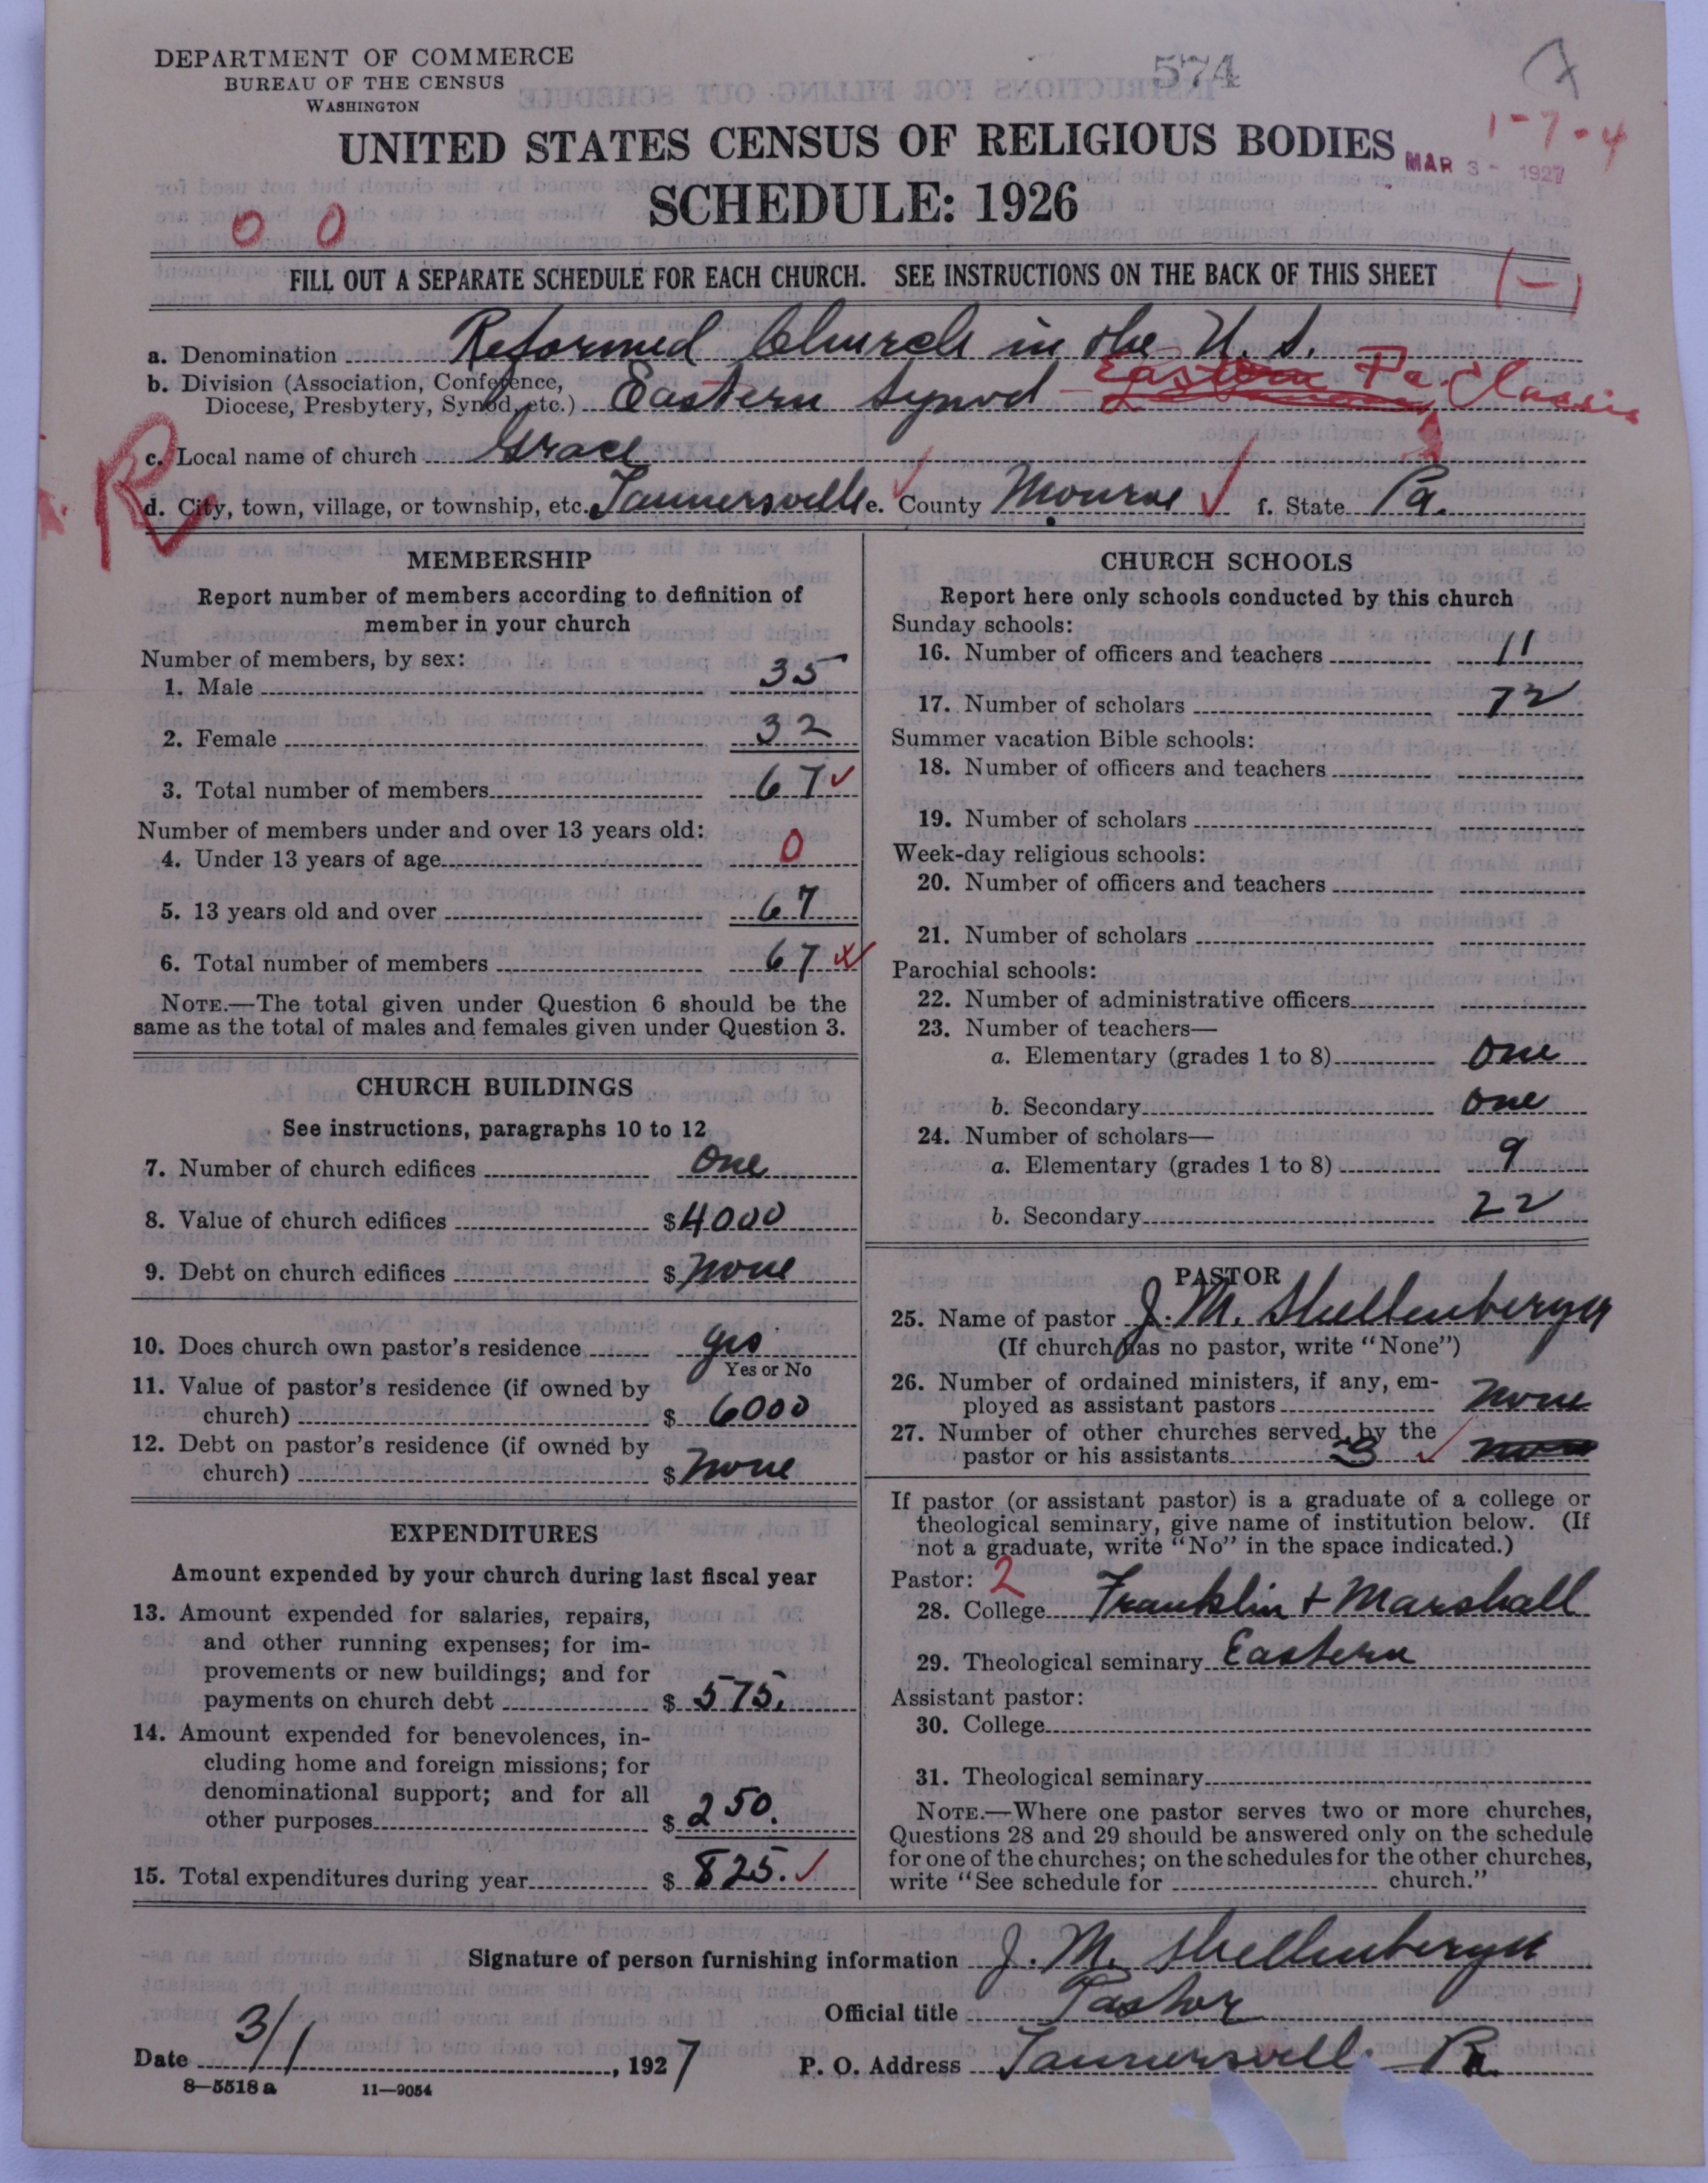 DEPARTMENT OF COMMERCE
BUREAU OF THE CENSUS
WASHINGTON
574
1-7-4
UNITED STATES CENSUS OF RELIGIOUS BODIES
MAR 3 - 1927
SCHEDULE: 1926
0 0
FILL OUT A SEPARATE SCHEDULE FOR EACH CHURCH. SEE INSTRUCTIONS ON THE BACK OF THIS SHEET
a. Denomination Reformed Church in the U. S.
b. Division (Association, Conference, Diocese, Presbytery, Synod, etc.) Eastern Synod Eastern Pa. Classis
c. Local name of church Grace
d. City, town, village, or township, etc. Tannersville e. County Monroe f. State Pa.
R
MEMBERSHIP
Report number of members according to definition of
member in your church
Number of members, by sex:
1. Male 35
2. Female 32
3. Total number of members 67
Number of members under and over 13 years old:
4. Under 13 years of age 0
5. 13 years old and over 67
6. Total number of members 67
NOTE.—The total given under Question 6 should be the
same as the total of males and females given under Question 3.
CHURCH BUILDINGS
See instructions, paragraphs 10 to 12
7. Number of church edifices One
8. Value of church edifices $4000
9. Debt on church edifices $ None
10. Does church own pastor's residence yes
Yes or No
11. Value of pastor's residence (if owned by
church) $ 6000
12. Debt on pastor's residence (if owned by
church) $ None
EXPENDITURES
Amount expended by your church during last fiscal year
13. Amount expended for salaries, repairs,
and other running expenses; for im-
provements or new buildings; and for
payments on church debt $ 575.
14. Amount expended for benevolences, in-
cluding home and foreign missions; for
denominational support; and for all
other purposes $ 250.
15. Total expenditures during year $ 825.
CHURCH SCHOOLS
Report here only schools conducted by this church
Sunday schools:
16. Number of officers and teachers 11
17. Number of scholars 72
Summer vacation Bible schools:
18. Number of officers and teachers
19. Number of scholars
Week-day religious schools:
20. Number of officers and teachers
21. Number of scholars
Parochial schools:
22. Number of administrative officers
23. Number of teachers—
a. Elementary (grades 1 to 8) One
b. Secondary One
24. Number of scholars—
a. Elementary (grades 1 to 8) 9
b. Secondary 22
PASTOR
25. Name of pastor J. M. Shellenberger
(If church has no pastor, write "None")
26. Number of ordained ministers, if any, em-
ployed as assistant pastors None
27. Number of other churches served by the
pastor or his assistants 3 None
If pastor (or assistant pastor) is a graduate of a college or
theological seminary, give name of institution below. (If
not a graduate, write "No" in the space indicated.)
Pastor: 2
28. College Franklin + Marshall
29. Theological seminary Eastern
Assistant pastor:
30. College
31. Theological seminary
NOTE.—Where one pastor serves two or more churches,
Questions 28 and 29 should be answered only on the schedule
for one of the churches; on the schedules for the other churches,
write "See schedule for church."
Signature of person furnishing information J. M. Shellenberger
Official title Pastor
Date 3/1, 1927 P. O. Address Tannersville Pa.
8—5518 a 11—9054